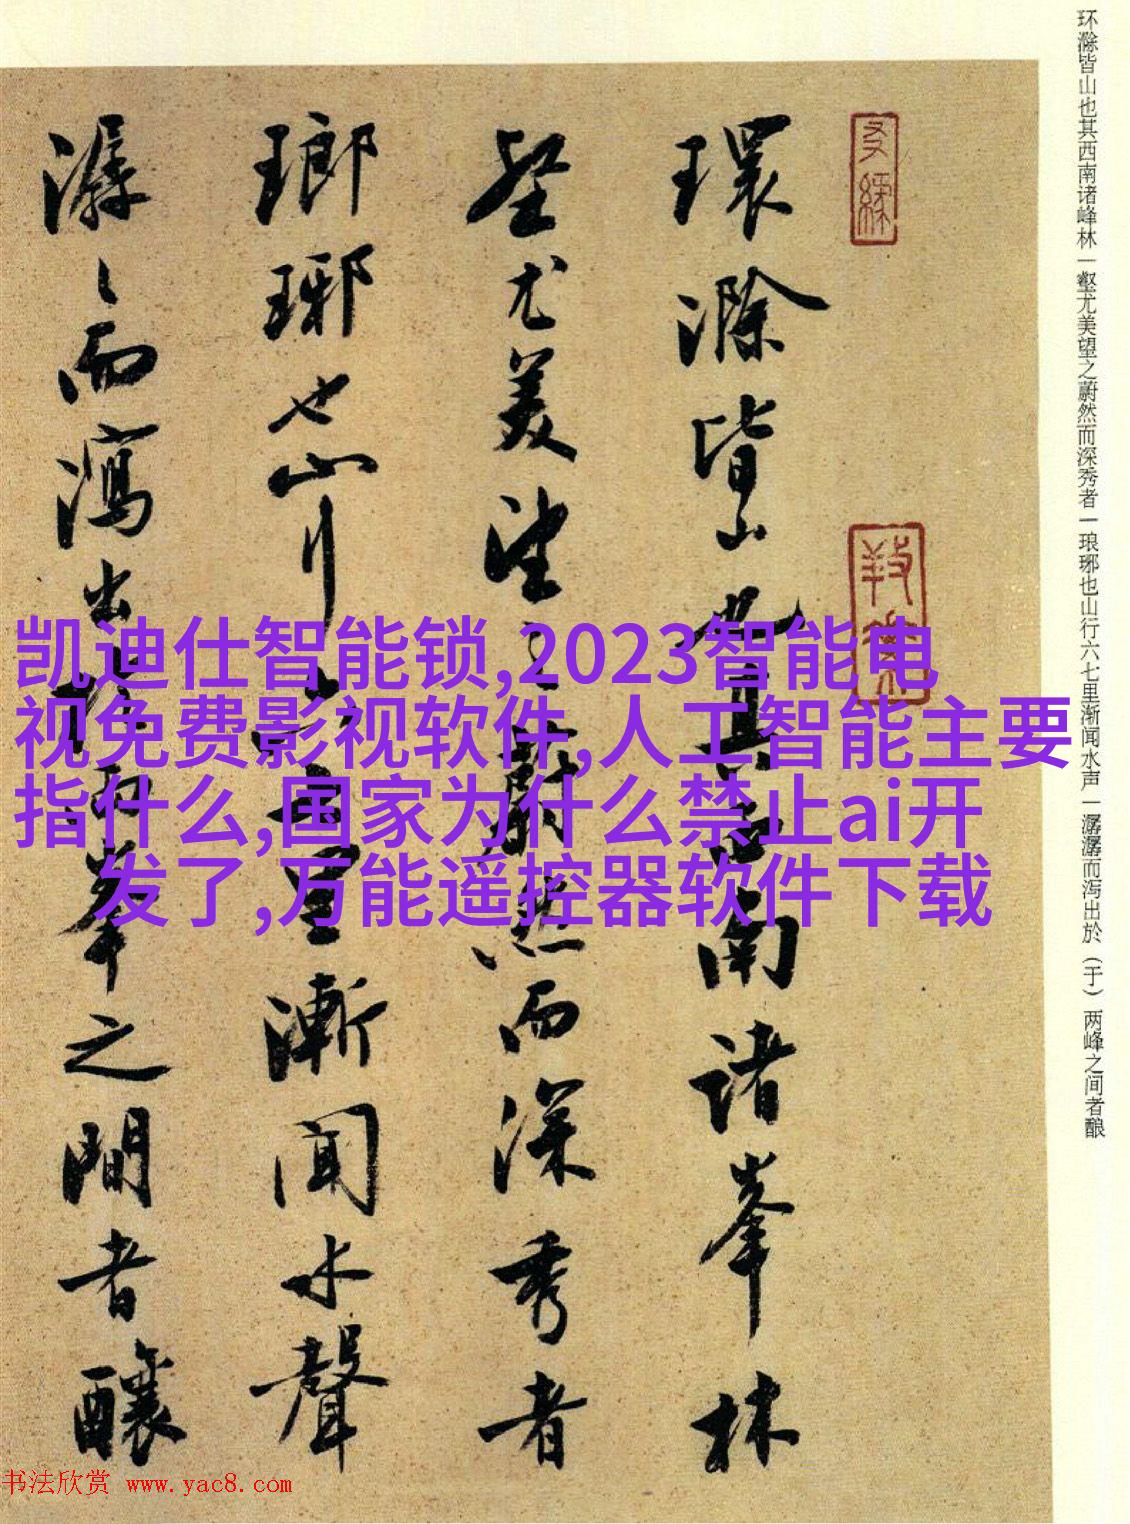 环滁皆山也其西南诸峰林一壑尤美望之蔚然而深秀者一琅琊也山行六七里渐闻水声一潺潺而泻出於（于）两峰之间者酿
環滁皆山也其西南諸峯林
壑尤美望之蔚然而深秀者
瑯琊也山行六七里漸聞水聲
潺々而瀉出於兩峯之間者釀
凯迪仕智能锁,2023智能电
视免费影视软件,人工智能主要
指什么,国家为什么禁止ai开
发了,万能遥控器软件下载
书法欣赏 www.yac8.com